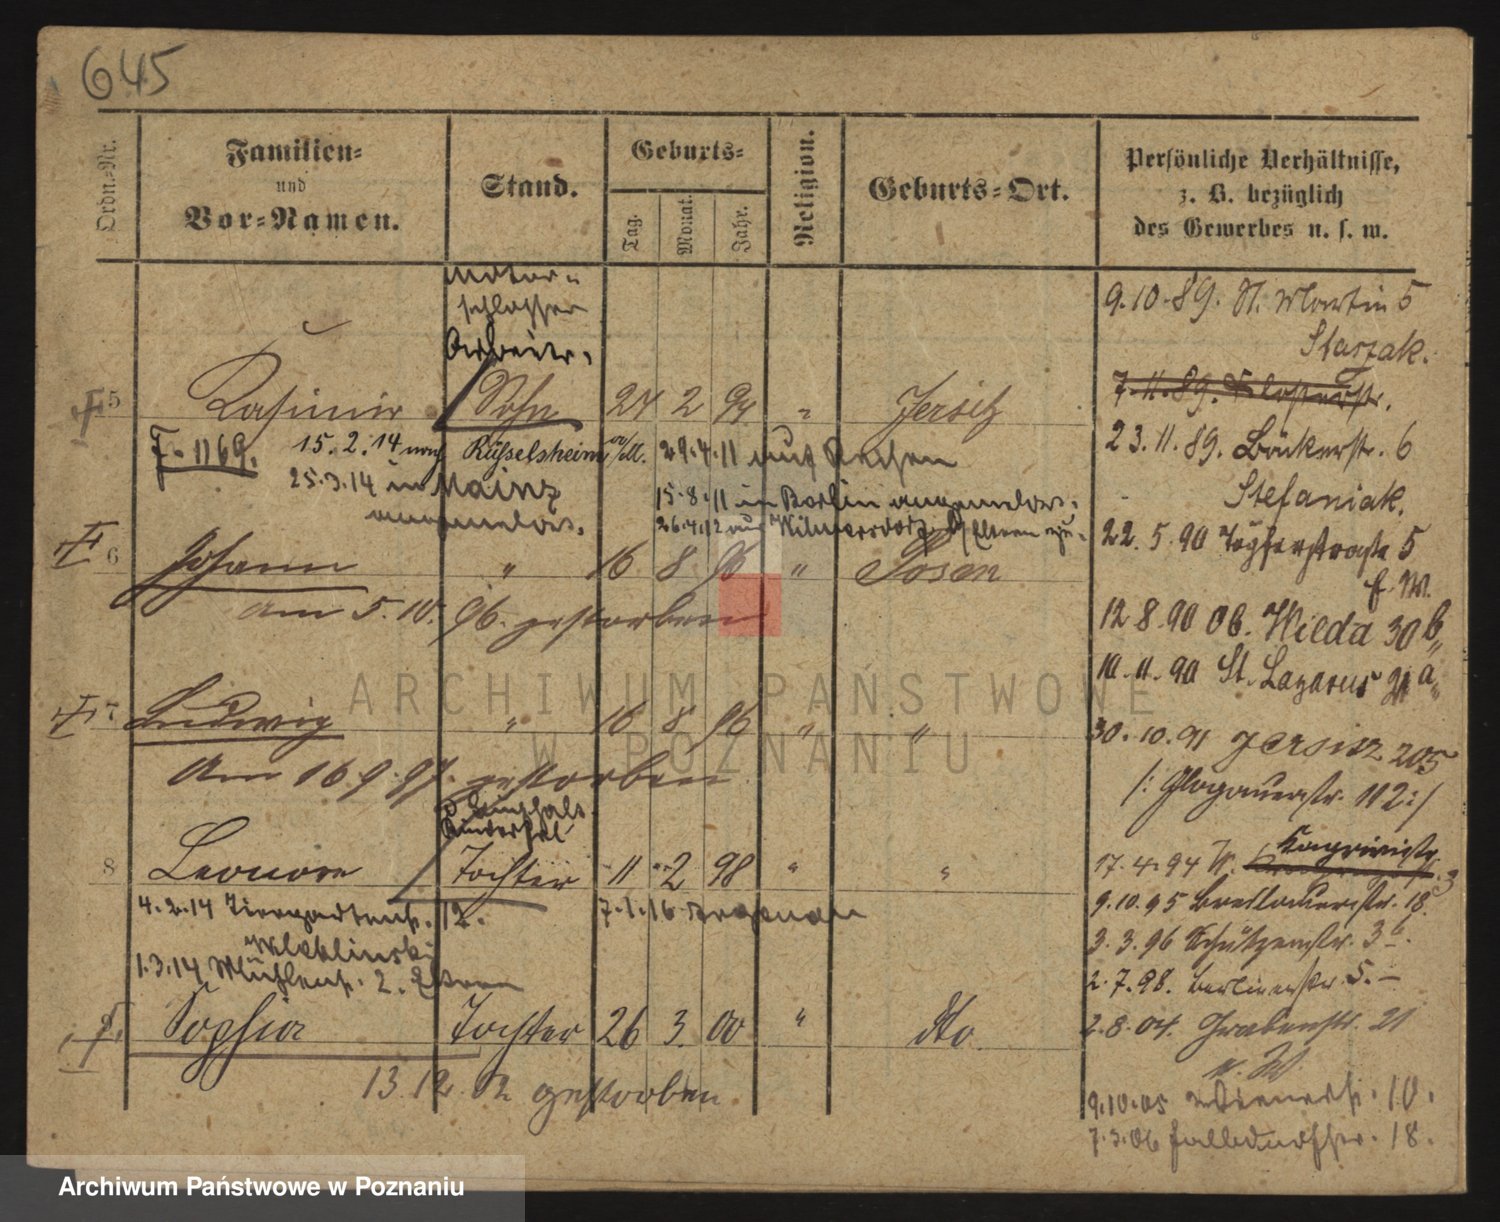 645
Ordn.-Nr.
Familien-
und
Vor-Namen.
Stand.
Geburts-
Tag.
Monat.
Jahr.
Religion.
Geburts-Ort.
Persönliche Verhältnisse,
z. B. bezüglich
des Gewerbes u. s. w.
Motor-
schlosser
Arbeiter.
5 Kasimir Sohn 24 2 94 " Jersitz
F. 1169. 15.2.14 nach Rüsselsheim a/M. 29.4.11 auf Reisen
25.3.14 in Mainz
angemeldet.
15.8.11 in Berlin angemeldet.
26.4.12 aus Wilmersdorf Eltern
6 Johann " 16 8 96 " Posen
am 5.10.96. gestorben
7 Ludwig " 16 8 96 " "
Am 16.9.97. gestorben
8 Leonore Tochter 11 2 98 " "
4.2.14 Tiergartenstr. 12. 7.1.16
1.3.14 Mühlenstr. 2. Eltern
Sophia Tochter 26 3 00 " dto.
13.12.02 gestorben
9.10.89. St. Martin 5
Starzak.
7.11.89. Klosterstr.
23.11.89. Bäckerstr. 6
Stefaniak.
22.5.90 Töpferstraße 5
12.8.90 Ob. Wilda 30 b
10.11.90 St. Lazarus 21 a
30.10.91 Jersitz 205
/: Glogauerstr. 112 :/
17.4.94 W. 3
9.10.95 Breslauerstr. 18.
3.3.96 Schützenstr. 36.
2.7.98. Berlinerstr. 5.-
2.8.04. Grabenstr. 21
9.10.05 10.
7.3.06 18.
ARCHIWUM PAŃSTWOWE
W POZNANIU
Archiwum Państwowe w Poznaniu